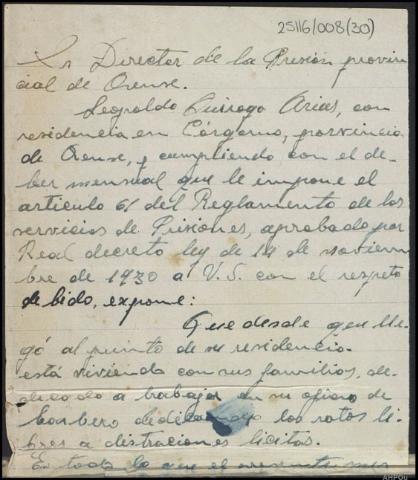 25116/008(30)
Sr Director de la Prisión provin
cial de Orense.
Leopoldo Quiroga Arias, con
residencia en Córgomo, porvincia
de Orense, y cumpliendo con el de
ber mensual que le impone el
articulo 61 del Reglamento de los
servicios de Prisiones, aprobado por
Real decreto ley de 14 de noviem
bre de 1930 a V.S. con el respeto
debido, expone:
Que desde que lle
gó al punto de su residencia
está viviendo con sus familios, de
dicado a trabajar en su oficio de
barbero dedicando los ratos li
bres a distraciones licitas.
En todo lo que el
AHPOU